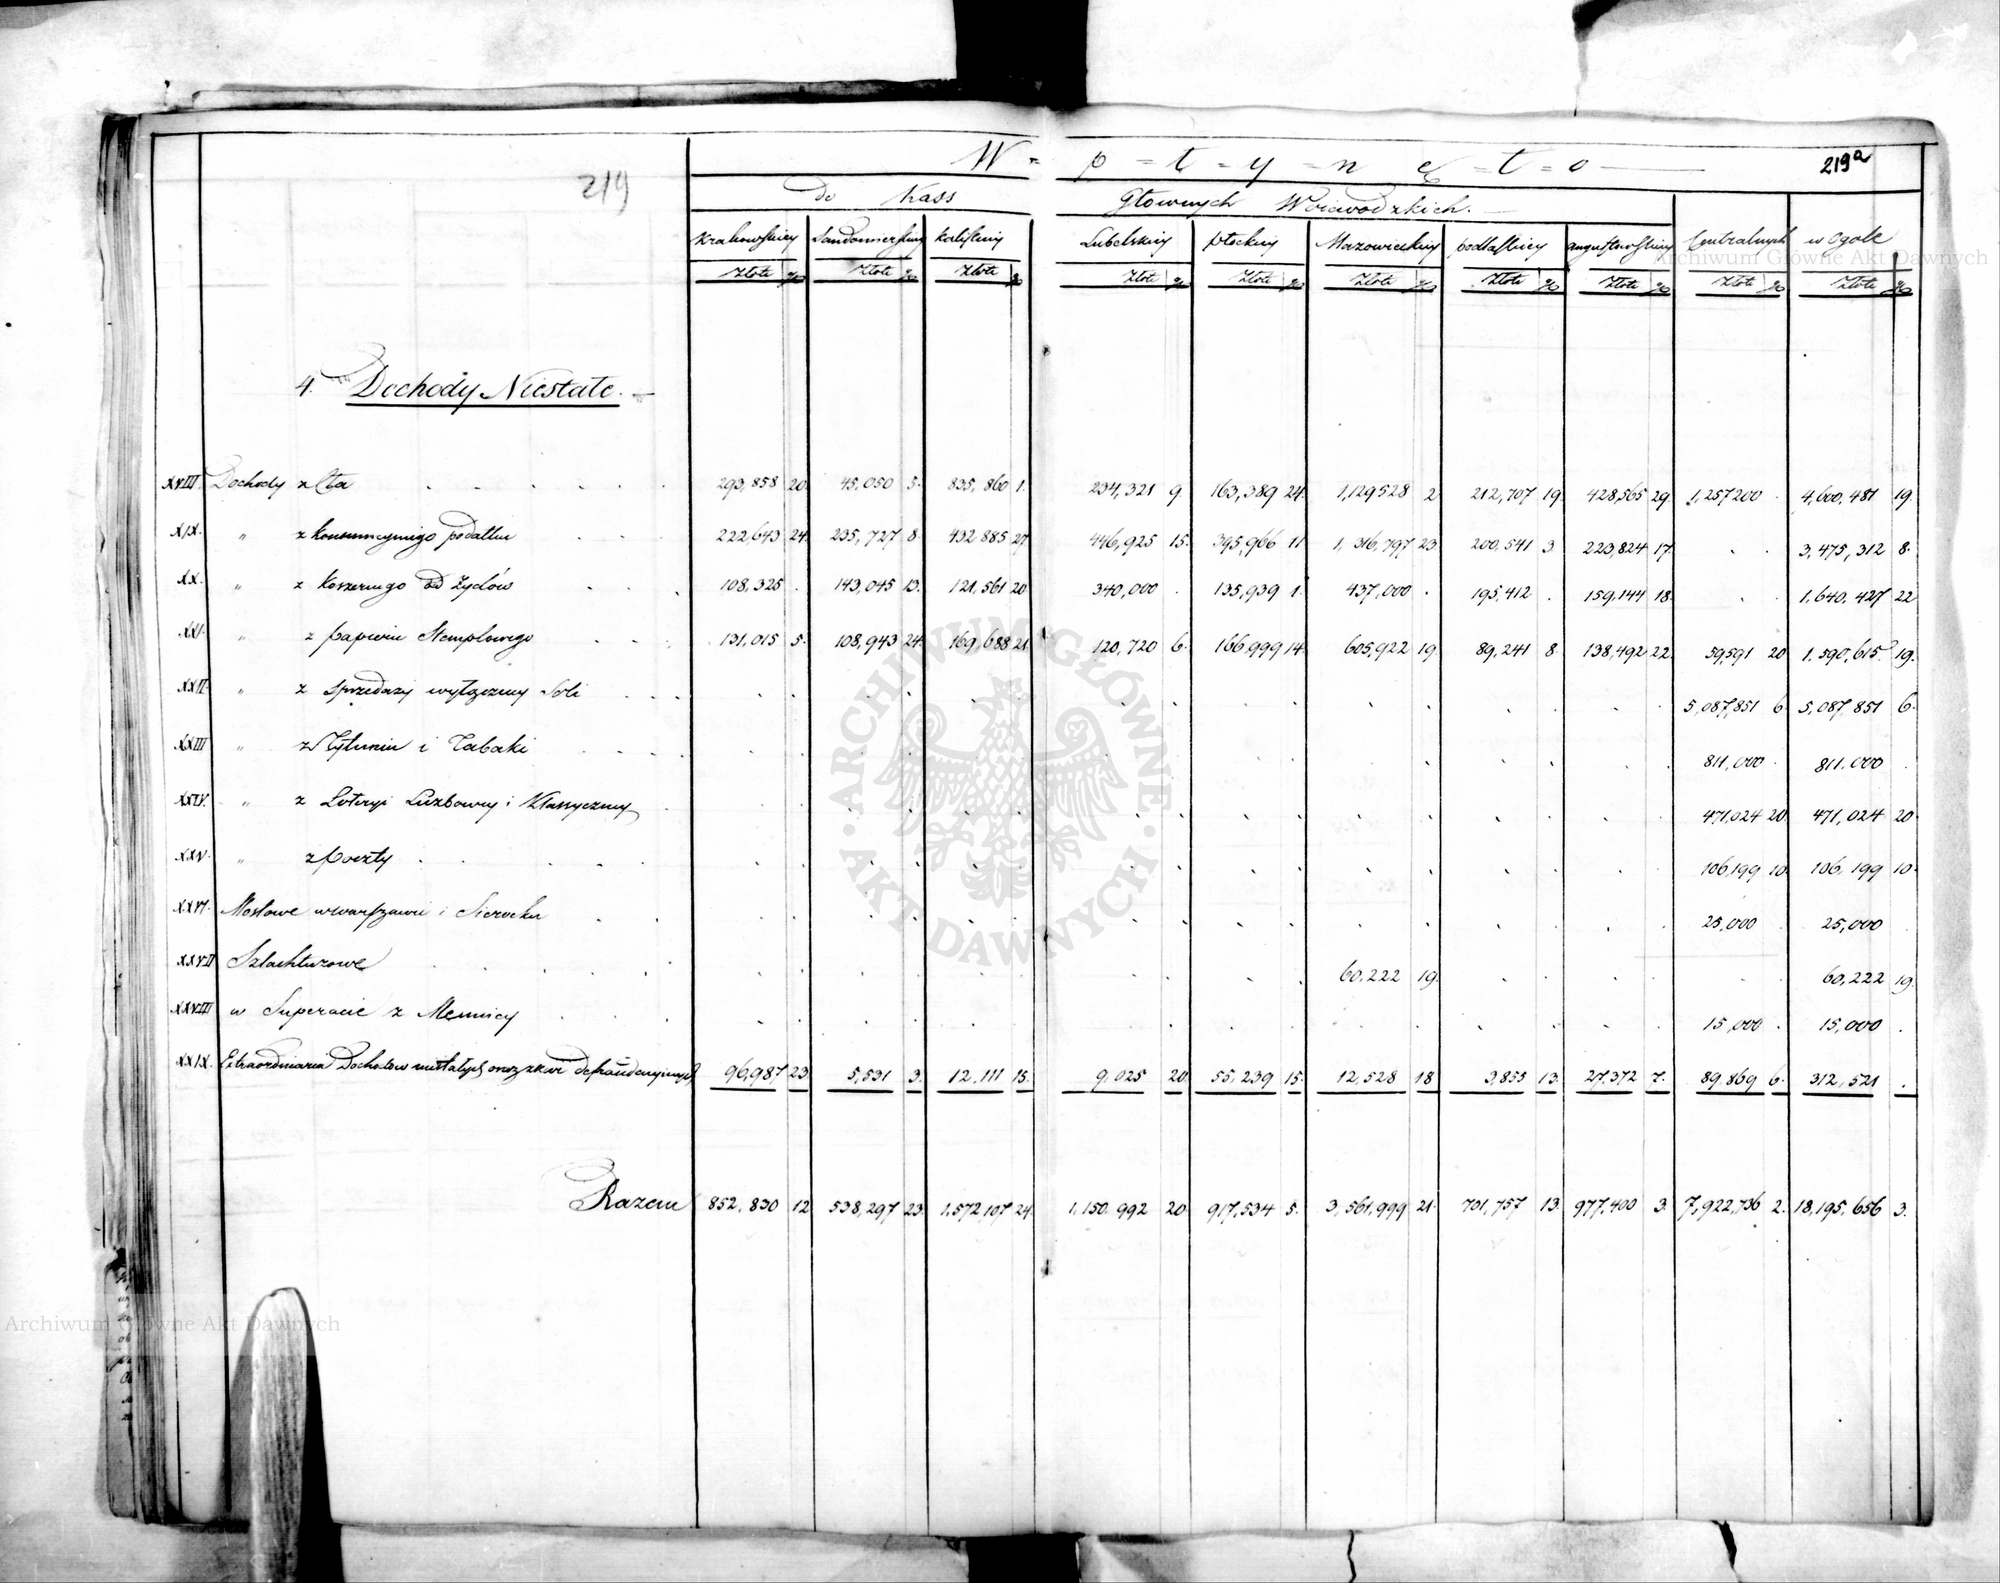 219
W = p = t = y = n = ę = t = o
219a
do Kass Głównych Woiewodzkich.
Krakowskiey Sandomierskiey Kaliskiey Lubelskiey Płockiey Mazowieckiey podlaskiey augustowskiey Centralnych w ogole
Złote gr Złote gr Złote gr Złote gr Złote gr Złote gr Złote gr Złote gr Złote gr Złote gr
4. Dochody Niestałe.
XVIII. Dochody z Cła 293,858 20 45,050 5. 835,860 1. 234,321 9. 163,389 24. 1,129528 2 212,707 19. 428,565 29. 1,257200 . 4,600,481 19.
XIX. " z konsumcyinego podatku 222,643 24. 235,727 8. 432885 27 446,925 15. 395,966 11 1,316,797 23. 200,541 3 223,824 17. . . 3,475,312 8.
XX. " z Koszernego od Żydów 108,325 . 143,045 13. 121,561 20 340,000 . 135,939 1. 437,000 . 195,412 . 159,144 18. . . 1,640,427 22
XXI. " z papieru Stemplowego 131,015 5. 108,943 24. 169,688 21 120,720 6. 166,999 14. 605,922 19 89,241 8 138,492 22. 59,591 20 1.590,615. 19.
XXII. " z sprzedaży wyłączney Soli 5,087,851 6. 5,087.851 6.
XXIII " z Tytuniu i Tabaki 811,000 . 811.000 .
XXIV. " z Loteryi Liczbowey i Klassyczney 471,024 20. 471,024 20.
XXV. " z Poczty 106,199 10. 106,199 10.
XXVI. Mostowe w warszawie i Sierocku 25,000 . 25,000 .
XXVII Szlachtuzowe 60,222 19. 60,222 19.
XXVIII w Superacie z Mennicy 15,000 . 15,000 .
XXIX. Extraordinaria Dochodow niestałych oraz z kar defraudacyinych 96,987 23 5,531 3. 12,111 15. 9,025 20. 55,239 15. 12,528 18 3,855 13. 27.372 7. 89,869 6. 312,521 .
Razem 852,830 12 538,297 23. 1,572107 24. 1,150.992 20. 917,534 5. 3,561,999 21. 701,757 13. 977.400 3. 7,922,736 2. 18,195,656 3.
ARCHIWUM GŁÓWNE AKT DAWNYCH
Archiwum Główne Akt Dawnych
Archiwum Główne Akt Dawnych